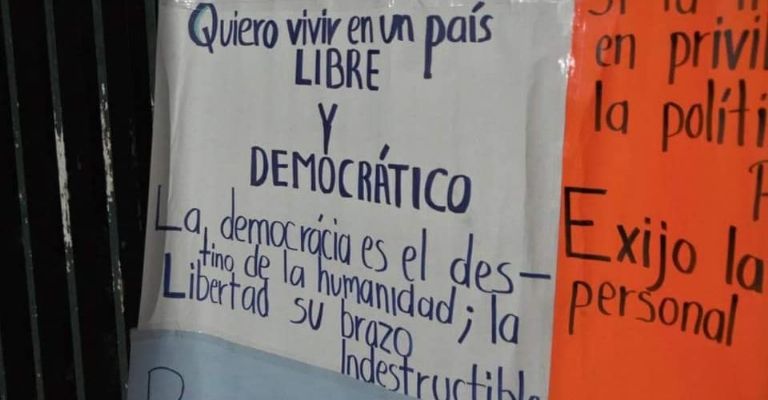 Quiero vivir en un país
LIBRE
Y
DEMOCRÁTICO
La democrácia es el des-
tino de la humanidad; la
Libertad su brazo
Indestructible
en privil
la políti
Exijo la
personal